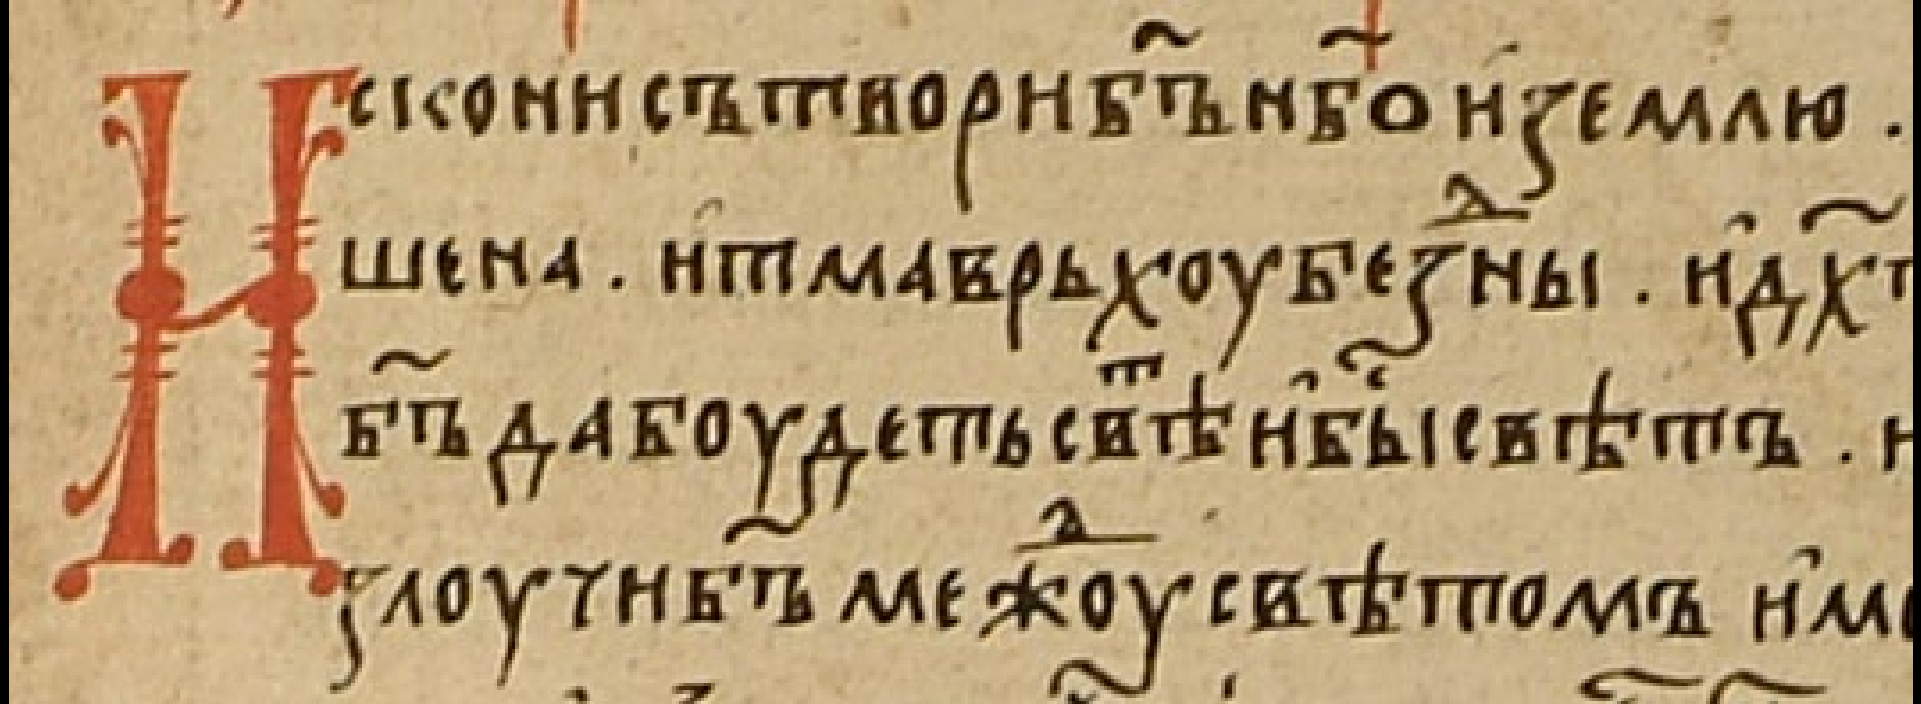 Искони сътвори б҃ъ нб҃о и҆ землю .
шена . и҆ тма врьхоу безⷣны . и҆ дх҃
б҃ъ да боудеть свѣⷮ и҆ бы҃ свѣтъ .
злоучи б҃ъ межⷣоу свѣтомъ и҆